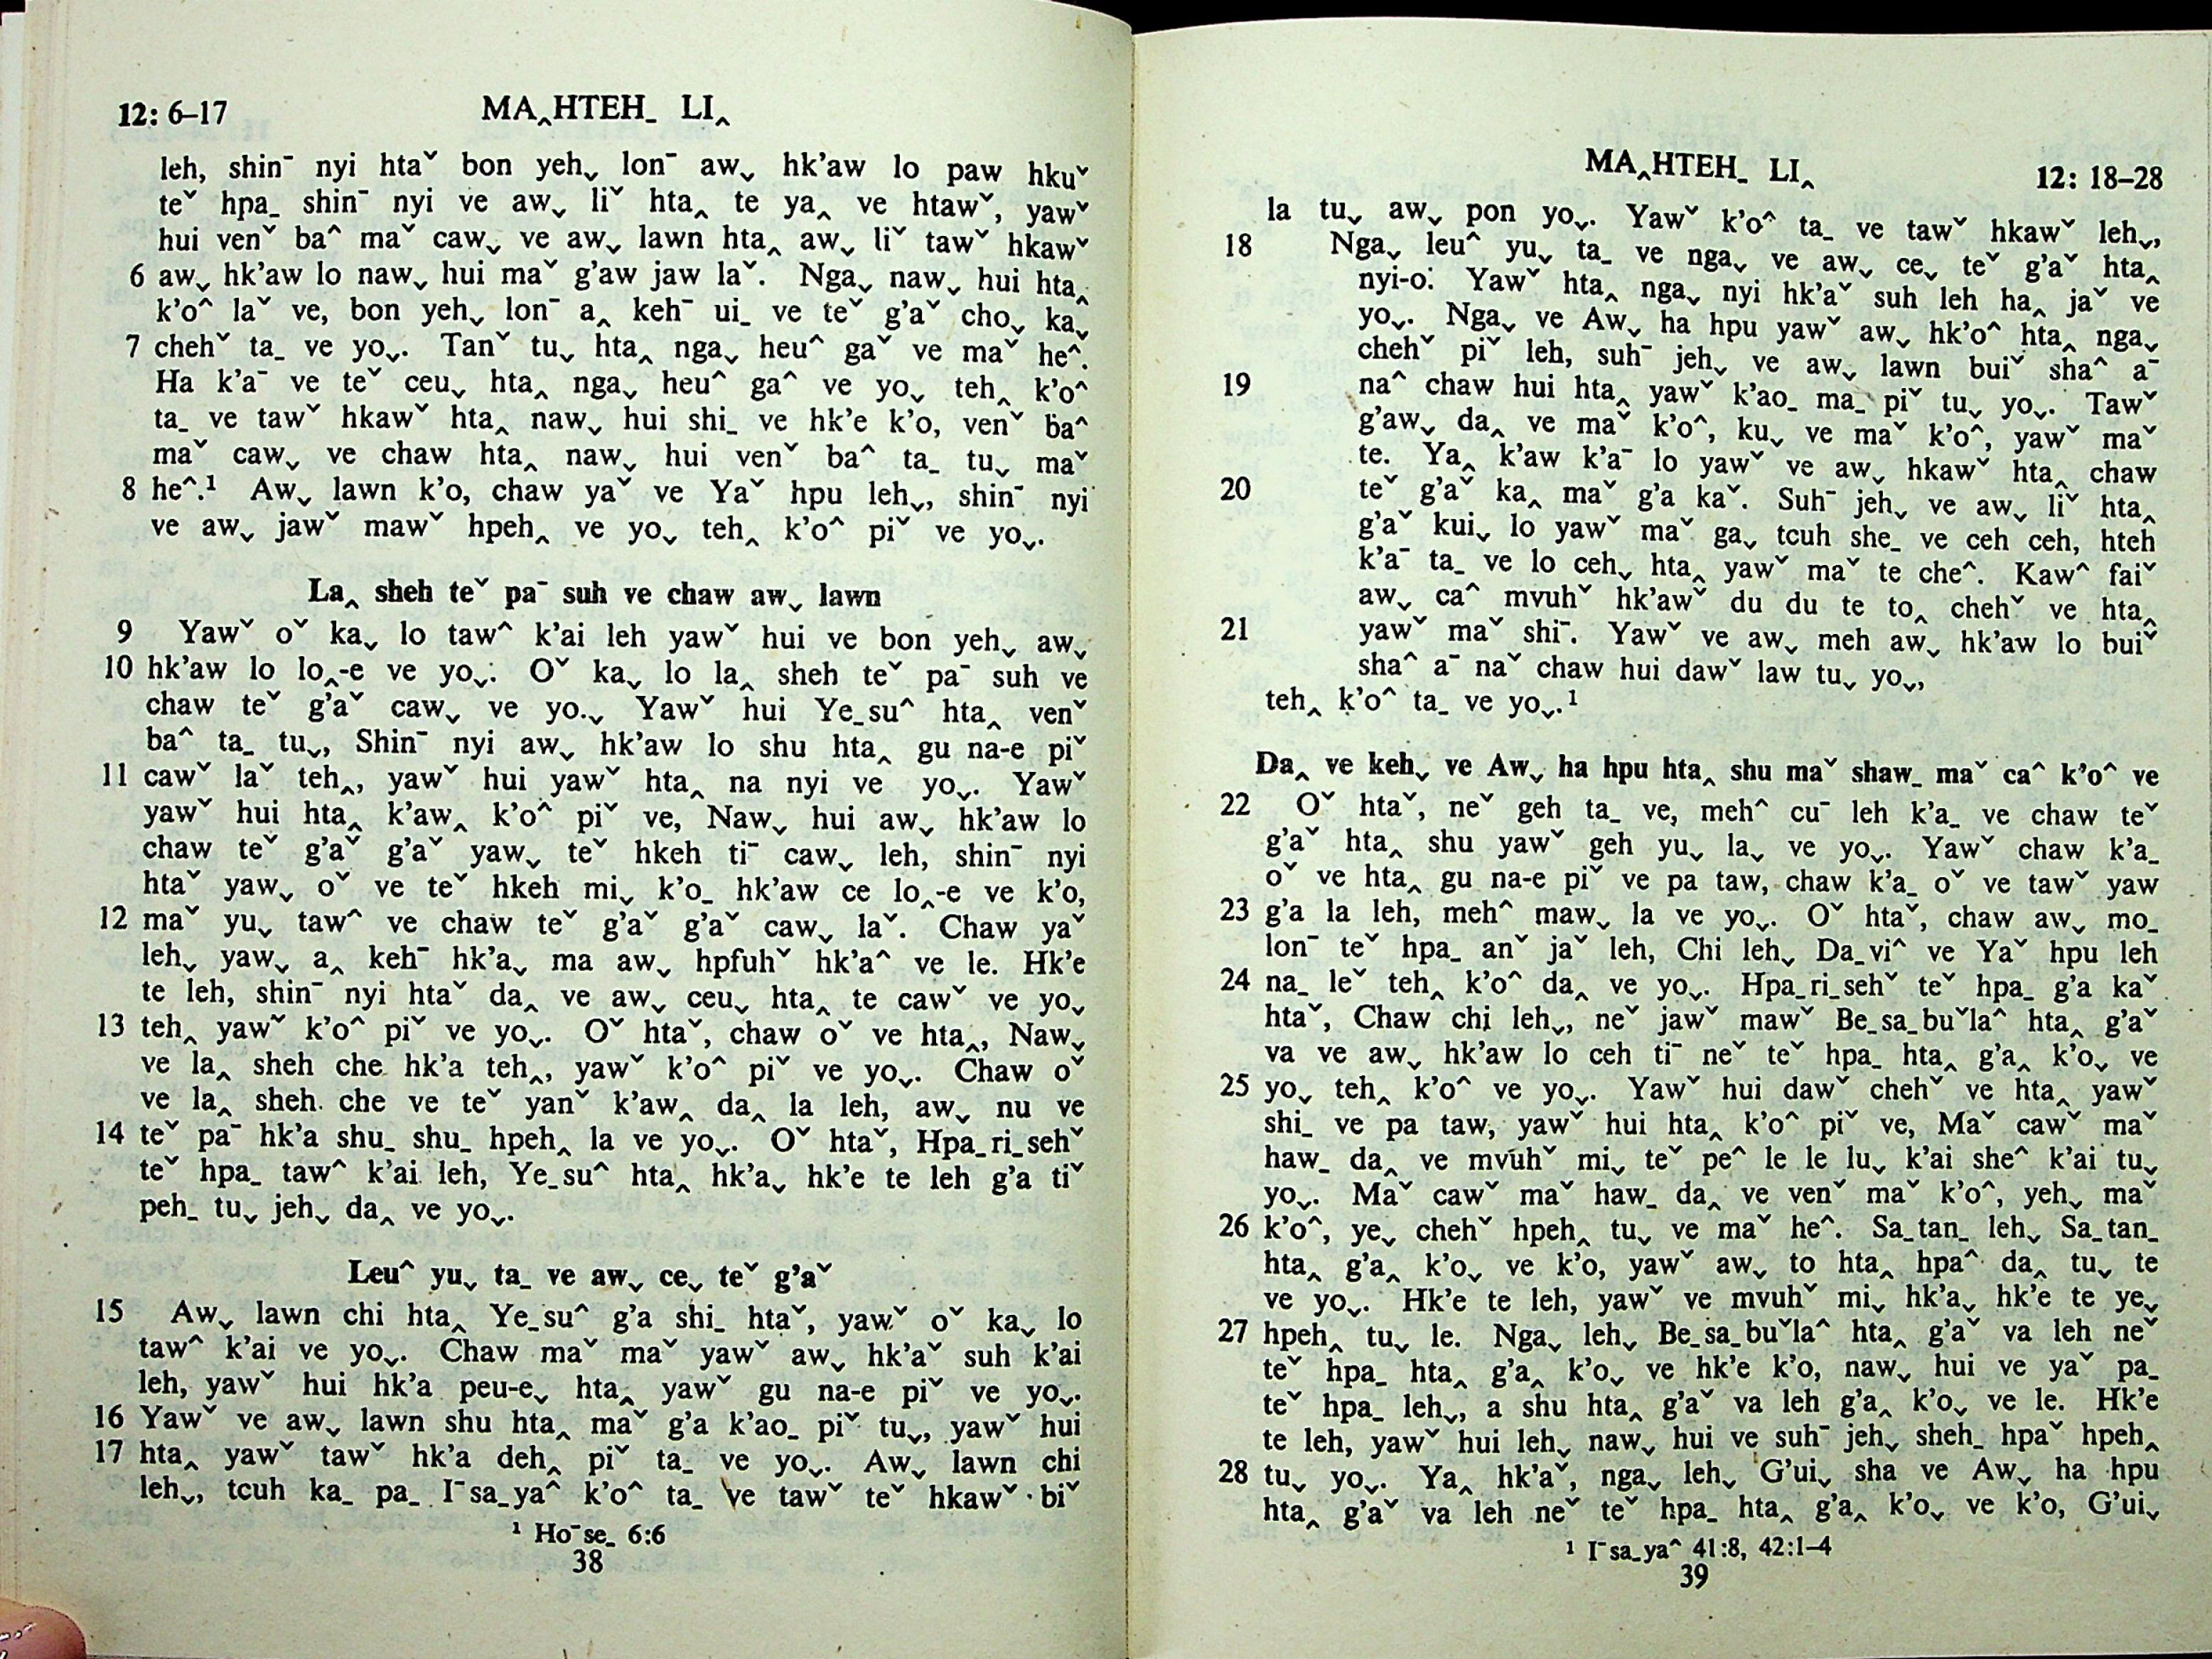 12: 6–17 MA‸HTEH_ LI‸
leh, shinˉ nyi htaˇ bon yehˬ lonˉ awˬ hk'aw lo paw hkuˇ
teˇ hpa_ shinˉ nyi ve awˬ liˇ hta‸ te ya‸ ve htawˇ, yawˇ
hui venˇ ba^ maˇ cawˬ ve awˬ lawn hta‸ awˬ liˇ tawˇ hkawˇ
6 awˬ hk'aw lo nawˬ hui maˇ g'aw jaw laˇ. Ngaˬ nawˬ hui hta‸
k'o^ laˇ ve, bon yehˬ lonˉ a‸ kehˉ ui_ ve teˇ g'aˇ choˬ kaˬ
7 chehˇ ta_ ve yoˬ. Tanˇ tuˬ hta‸ ngaˬ heu^ gaˇ ve maˇ he^.
Ha k'aˉ ve teˇ ceuˬ hta‸ ngaˬ heu^ ga^ ve yoˬ teh‸ k'o^
ta_ ve tawˇ hkawˇ hta‸ nawˬ hui shi_ ve hk'e k'o, venˇ ba^
maˇ cawˬ ve chaw hta‸ nawˬ hui venˇ ba^ ta_ tuˬ maˇ
8 he^.¹ Awˬ lawn k'o, chaw yaˇ ve Yaˇ hpu lehˬ, shinˉ nyi
ve awˬ jawˇ mawˇ hpeh‸ ve yoˬ teh‸ k'o^ piˇ ve yoˬ.
La‸ sheh teˇ paˉ suh ve chaw awˬ lawn
9 Yawˇ oˇ kaˬ lo taw^ k'ai leh yawˇ hui ve bon yehˬ awˬ
10 hk'aw lo lo‸-e ve yoˬ: Oˇ kaˬ lo la‸ sheh teˇ paˉ suh ve
chaw teˇ g'aˇ cawˬ ve yo.ˬ Yawˇ hui Ye_su^ hta‸ venˇ
ba^ ta_ tuˬ, Shinˉ nyi awˬ hk'aw lo shu hta‸ gu na-e piˇ
11 cawˇ laˇ teh‸, yawˇ hui yawˇ hta‸ na nyi ve yoˬ. Yawˇ
yawˇ hui hta‸ k'aw‸ k'o^ piˇ ve, Nawˬ hui awˬ hk'aw lo
chaw teˇ g'aˇ g'aˇ yawˬ teˇ hkeh tiˉ cawˬ leh, shinˉ nyi
htaˇ yawˬ oˇ ve teˇ hkeh miˬ k'o_ hk'aw ce lo‸-e ve k'o,
12 maˇ yuˬ taw^ ve chaw teˇ g'aˇ g'aˇ cawˬ laˇ. Chaw yaˇ
lehˬ yawˬ a‸ kehˉ hk'aˬ ma awˬ hpfuhˇ hk'a^ ve le. Hk'e
te leh, shinˉ nyi htaˇ da‸ ve awˬ ceuˬ hta‸ te cawˇ ve yoˬ
13 teh‸ yawˇ k'o^ piˇ ve yoˬ. Oˇ htaˇ, chaw oˇ ve hta‸, Nawˬ
ve la‸ sheh che hk'a teh‸, yawˇ k'o^ piˇ ve yoˬ. Chaw oˇ
ve la‸ sheh che ve teˇ yanˇ k'aw‸ da‸ la leh, awˬ nu ve
14 teˇ paˉ hk'a shu_ shu_ hpeh‸ la ve yoˬ. Oˇ htaˇ, Hpa_ri_sehˇ
teˇ hpa_ taw^ k'ai leh, Ye_su^ hta‸ hk'aˬ hk'e te leh g'a tiˇ
peh_ tuˬ jehˬ da‸ ve yoˬ.
Leu^ yuˬ ta_ ve awˬ ceˬ teˇ g'aˇ
15 Awˬ lawn chi hta‸ Ye_su^ g'a shi_ htaˇ, yawˇ oˇ kaˬ lo
taw^ k'ai ve yoˬ. Chaw maˇ maˇ yawˇ awˬ hk'aˇ suh k'ai
leh, yawˇ hui hk'a peu-eˬ hta‸ yawˇ gu na-e piˇ ve yoˬ.
16 Yawˇ ve awˬ lawn shu hta‸ maˇ g'a k'ao_ piˇ tuˬ, yawˇ hui
17 hta‸ yawˇ tawˇ hk'a deh‸ piˇ ta_ ve yoˬ. Awˬ lawn chi
lehˬ, tcuh ka_ pa_ Iˉsa_ya^ k'o^ ta_ ve tawˇ teˇ hkawˇ biˇ
¹ Hoˉse_ 6:6
38
MA‸HTEH_ LI‸ 12: 18–28
la tuˬ awˬ pon yoˬ. Yawˇ k'o^ ta_ ve tawˇ hkawˇ lehˬ,
18 Ngaˬ leu^ yuˬ ta_ ve ngaˬ ve awˬ ceˬ teˇ g'aˇ hta‸
nyi-o: Yawˇ hta‸ ngaˬ nyi hk'aˇ suh leh ha‸ jaˇ ve
yoˬ. Ngaˬ ve Awˬ ha hpu yawˇ awˬ hk'o^ hta‸ ngaˬ
chehˇ piˇ leh, suhˉ jehˬ ve awˬ lawn buiˇ sha^ aˉ
19 na^ chaw hui hta‸ yawˇ k'ao_ ma_ piˇ tuˬ yoˬ. Tawˇ
g'awˬ da‸ ve maˇ k'o^, kuˬ ve maˇ k'o^, yawˇ maˇ
te. Ya‸ k'aw k'aˉ lo yawˇ ve awˬ hkawˇ hta‸ chaw
20 teˇ g'aˇ ka‸ maˇ g'a kaˇ. Suhˉ jehˬ ve awˬ liˇ hta‸
g'aˇ kuiˬ lo yawˇ maˇ gaˬ tcuh she_ ve ceh ceh, hteh
k'aˉ ta_ ve lo cehˬ hta‸ yawˇ maˇ te che^. Kaw^ faiˇ
awˬ ca^ mvuhˇ hk'awˇ du du te to‸ chehˇ ve hta‸
21 yawˇ maˇ shiˉ. Yawˇ ve awˬ meh awˬ hk'aw lo buiˇ
sha^ aˉ naˇ chaw hui dawˇ law tuˬ yoˬ,
teh‸ k'o^ ta_ ve yoˬ.¹
Da‸ ve kehˬ ve Awˬ ha hpu hta‸ shu maˇ shaw_ maˇ ca^ k'o^ ve
22 Oˇ htaˇ, neˇ geh ta_ ve, meh^ cuˉ leh k'a_ ve chaw teˇ
g'aˇ hta‸ shu yawˇ geh yuˬ laˬ ve yoˬ. Yawˇ chaw k'a_
oˇ ve hta‸ gu na-e piˇ ve pa taw, chaw k'a_ oˇ ve tawˇ yaw
23 g'a la leh, meh^ mawˬ la ve yoˬ. Oˇ htaˇ, chaw awˬ mo_
lonˉ teˇ hpa_ anˇ jaˇ leh, Chi lehˬ Da_vi^ ve Yaˇ hpu leh
24 na_ leˇ teh‸ k'o^ da‸ ve yoˬ. Hpa_ri_sehˇ teˇ hpa_ g'a kaˇ
htaˇ, Chaw chi lehˬ, neˇ jawˇ mawˇ Be_sa_buˇla^ hta‸ g'aˇ
va ve awˬ hk'aw lo ceh tiˉ neˇ teˇ hpa_ hta‸ g'a‸ k'oˬ ve
25 yoˬ teh‸ k'o^ ve yoˬ. Yawˇ hui dawˇ chehˇ ve hta‸ yawˇ
shi_ ve pa taw, yawˇ hui hta‸ k'o^ piˇ ve, Maˇ cawˇ maˇ
haw_ da‸ ve mvuhˇ miˬ teˇ pe^ le le luˬ k'ai she^ k'ai tuˬ
yoˬ. Maˇ cawˇ maˇ haw_ da‸ ve venˇ maˇ k'o^, yehˬ maˇ
26 k'o^, yeˬ chehˇ hpeh‸ tuˬ ve maˇ he^. Sa_tan_ lehˬ Sa_tan_
hta‸ g'a‸ k'oˬ ve k'o, yawˇ awˬ to hta‸ hpa^ da‸ tuˬ te
ve yoˬ. Hk'e te leh, yawˇ ve mvuhˇ miˬ hk'aˬ hk'e te yeˬ
27 hpeh‸ tuˬ le. Ngaˬ lehˬ Be_sa_buˇla^ hta‸ g'aˇ va leh neˇ
teˇ hpa_ hta‸ g'a‸ k'oˬ ve hk'e k'o, nawˬ hui ve yaˇ pa_
teˇ hpa_ lehˬ, a shu hta‸ g'aˇ va leh g'a‸ k'oˬ ve le. Hk'e
te leh, yawˇ hui lehˬ nawˬ hui ve suhˉ jehˬ sheh_ hpaˇ hpeh‸
28 tuˬ yoˬ. Ya‸ hk'aˇ, ngaˬ lehˬ G'uiˬ sha ve Awˬ ha hpu
hta‸ g'aˇ va leh neˇ teˇ hpa_ hta‸ g'a‸ k'oˬ ve k'o, G'uiˬ
¹ Iˉsa_ya^ 41:8, 42:1–4
39